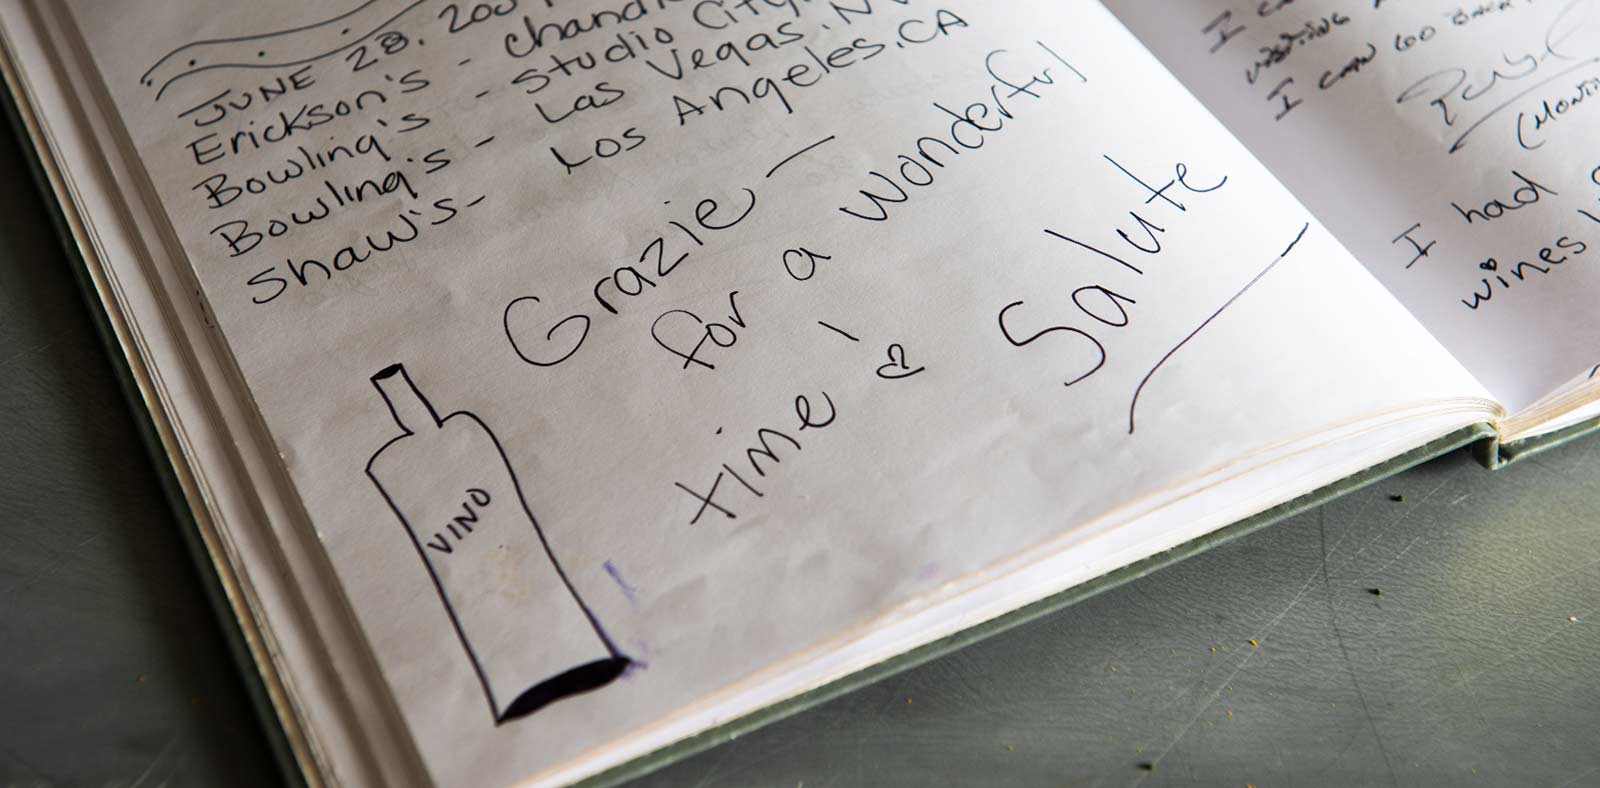 JUNE 28, 200
Erickson's - Chand
Bowling's - Studio City,
Bowling's - Las Vegas, NV
Shaw's - Los Angeles, CA
Grazie —
for a wonderful
time!
Salute
VINO
I can go back
I had
wines